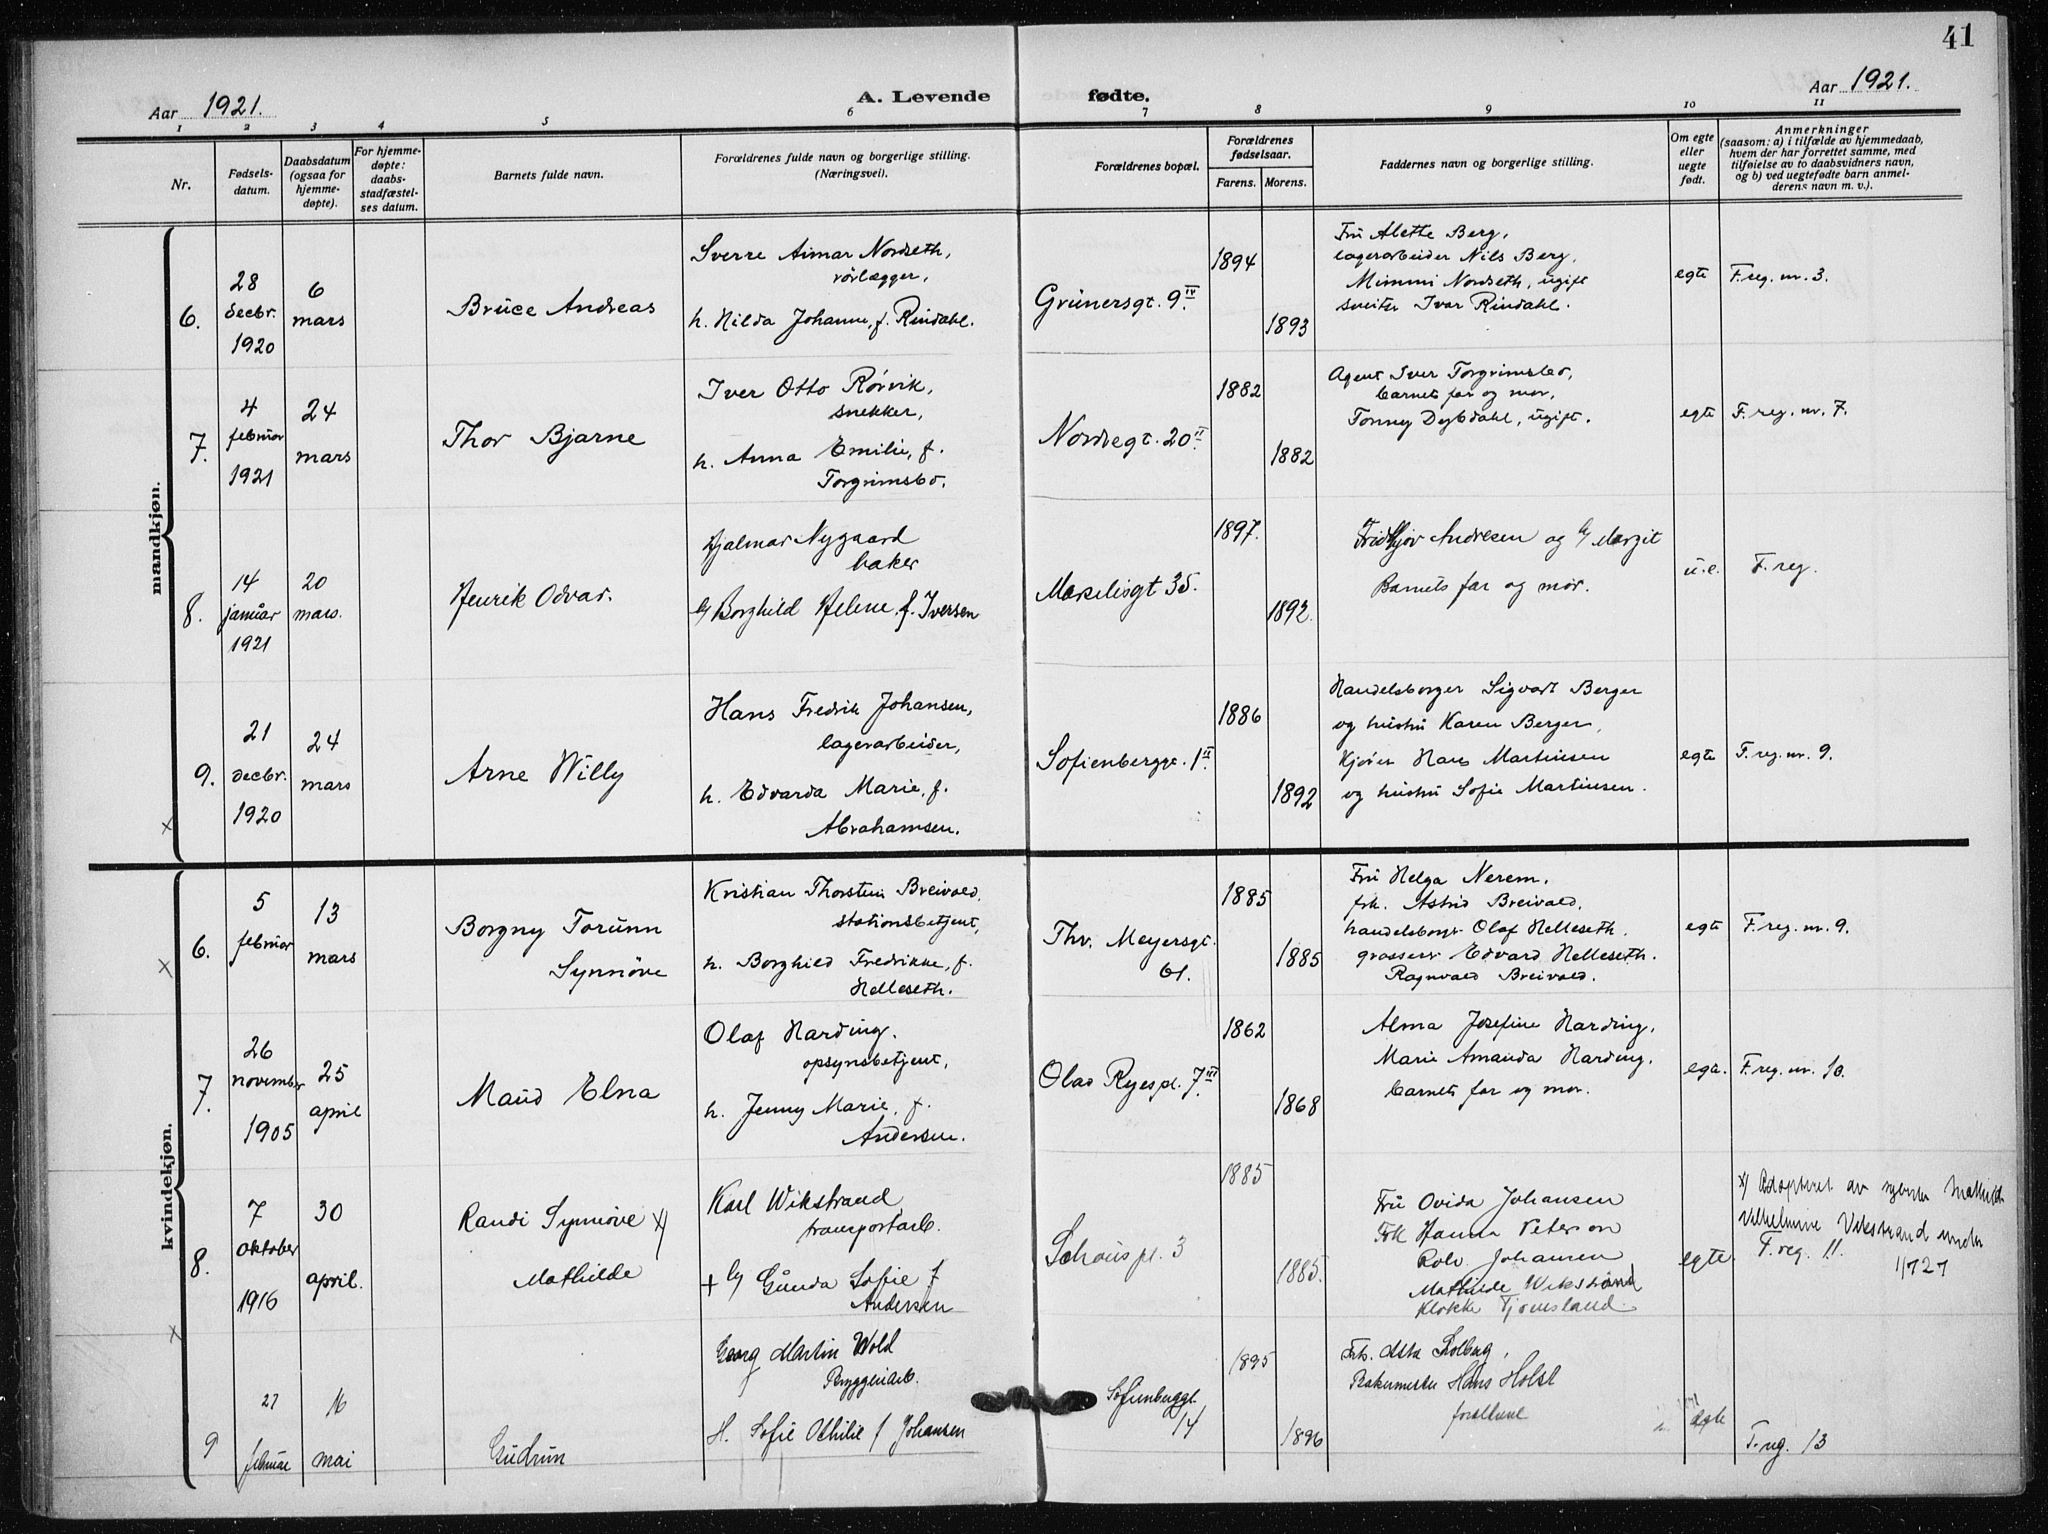 41
Aar 1921.
A. Levende fødte.
Aar 1921.
1 2 3 4 5 6 7 8 9 10 11
Nr.
Fødsels-
datum.
Daabsdatum
(ogsaa for
hjemme-
døpte).
For hjemme-
døpte:
daabs-
stadfæstel-
ses datum.
Barnets fulde navn.
Forældrenes fulde navn og borgerlige stilling.
(Næringsvei).
Forældrenes bopæl.
Forældrenes
fødselsaar.
Farens. Morens.
Faddernes navn og borgerlige stilling.
Om egte
eller
uegte
født.
Anmerkninger
(saasom: a) i tilfælde av hjemmedaab,
hvem der har forrettet samme, med
tilføielse av to daabsvidners navn,
og b) ved uegtefødte barn anmel-
derens navn m. v.).
mandkjøn.
6.
28
decbr.
1920
6
mars
Bruce Andreas
Sverre Aimar Nordseth,
rørlægger,
h. Hilda Johanne, f. Rindahl.
Grünersgt. 9 IV
1894
1893
Fru Alette Berg,
lagerarbeider Nils Berg,
Mimmi Nordseth, ugift
Ivar Rindahl.
egte
F. reg. nr. 3.
7.
4
februar
1921
24
mars
Thor Bjarne
Iver Otto Rørvik,
snekker,
h. Anna Emilie, f.
Torgrimsbo.
Nordregt. 20 II
1882
1882
Agent Iver Torgrimsbo,
barnets far og mor,
Tonny Dybdahl, ugift.
egte
F. reg. nr. 7.
8.
14
januar
1921
20
mars.
Henrik Odvar.
Hjalmar Nygaard
baker
h/ Borghild Helene, f. Iversen
Markvei­sgt 35.
1897.
1892.
Fridthjov Andresen og h/ Margit
Barnets far og mor.
u.e.
F. reg.
9.
21
decbr.
1920
24
mars
Arne Willy
Hans Fredrik Johansen,
lagerarbeider,
h. Edvarda Marie, f.
Abrahamsen.
Sofienberggt. 1 II
1886
1892
Handelsborger Sigvart Berger
og hustru Karen Berger,
Kjører Hans Martinsen
og hustru Sofie Martinsen.
egte
F. reg. nr. 9.
x
kvindekjøn.
6.
5
februar
13
mars
Borgny Torunn
Synnøve
Kristian Thorstein Breivold,
stationsbetjent,
h. Borghild Fredrikke, f.
Helleseth.
Thv. Meyersgt.
61.
1885
1885
Fru Helga Nerem,
frk. Astrid Breivold,
handelsborgr Olaf Helleseth.
grosserer Edvard Helleseth.
Ragnvald Breivold.
egte
F. reg. nr. 9.
x
7.
26
november
1905
25
april
Maud Elna
Olaf Harding,
opsynsbetjent,
h. Jenny Marie, f.
Andersen.
Olas Ryespl. 7 III
1862
1868
Alma Josefine Harding,
Marie Amanda Harding,
barnets far og mor.
egte.
F. reg. nr. 10.
8.
7
oktober
1916
30
april.
Randi Synnøve x)
Mathilde
Karl Wikstrand
transportarb.
+ h/ Gunda Sofie f
Andersen
Schouspl. 3
1885
1885.
Fru Ovida Johansen
Frk Hanna Peterson
Rolv Johansen
Mathilde Wikstrand
Klokker Tjomsland
egte
x) Adopteret av Mathilde
Vilhelmine Vikstrand under
F. reg. 11. 1/7 27
x
9
27
februar
16
mai
Gudrun
Georg Martin Wold
Bryggeriarb.
H. Sofie Othilie f Johansen
Sofienberggt
14
1895
1896
Frk. Asta Solberg,
Bakermester Hans Holst
forældrene
egte
F. reg. 13